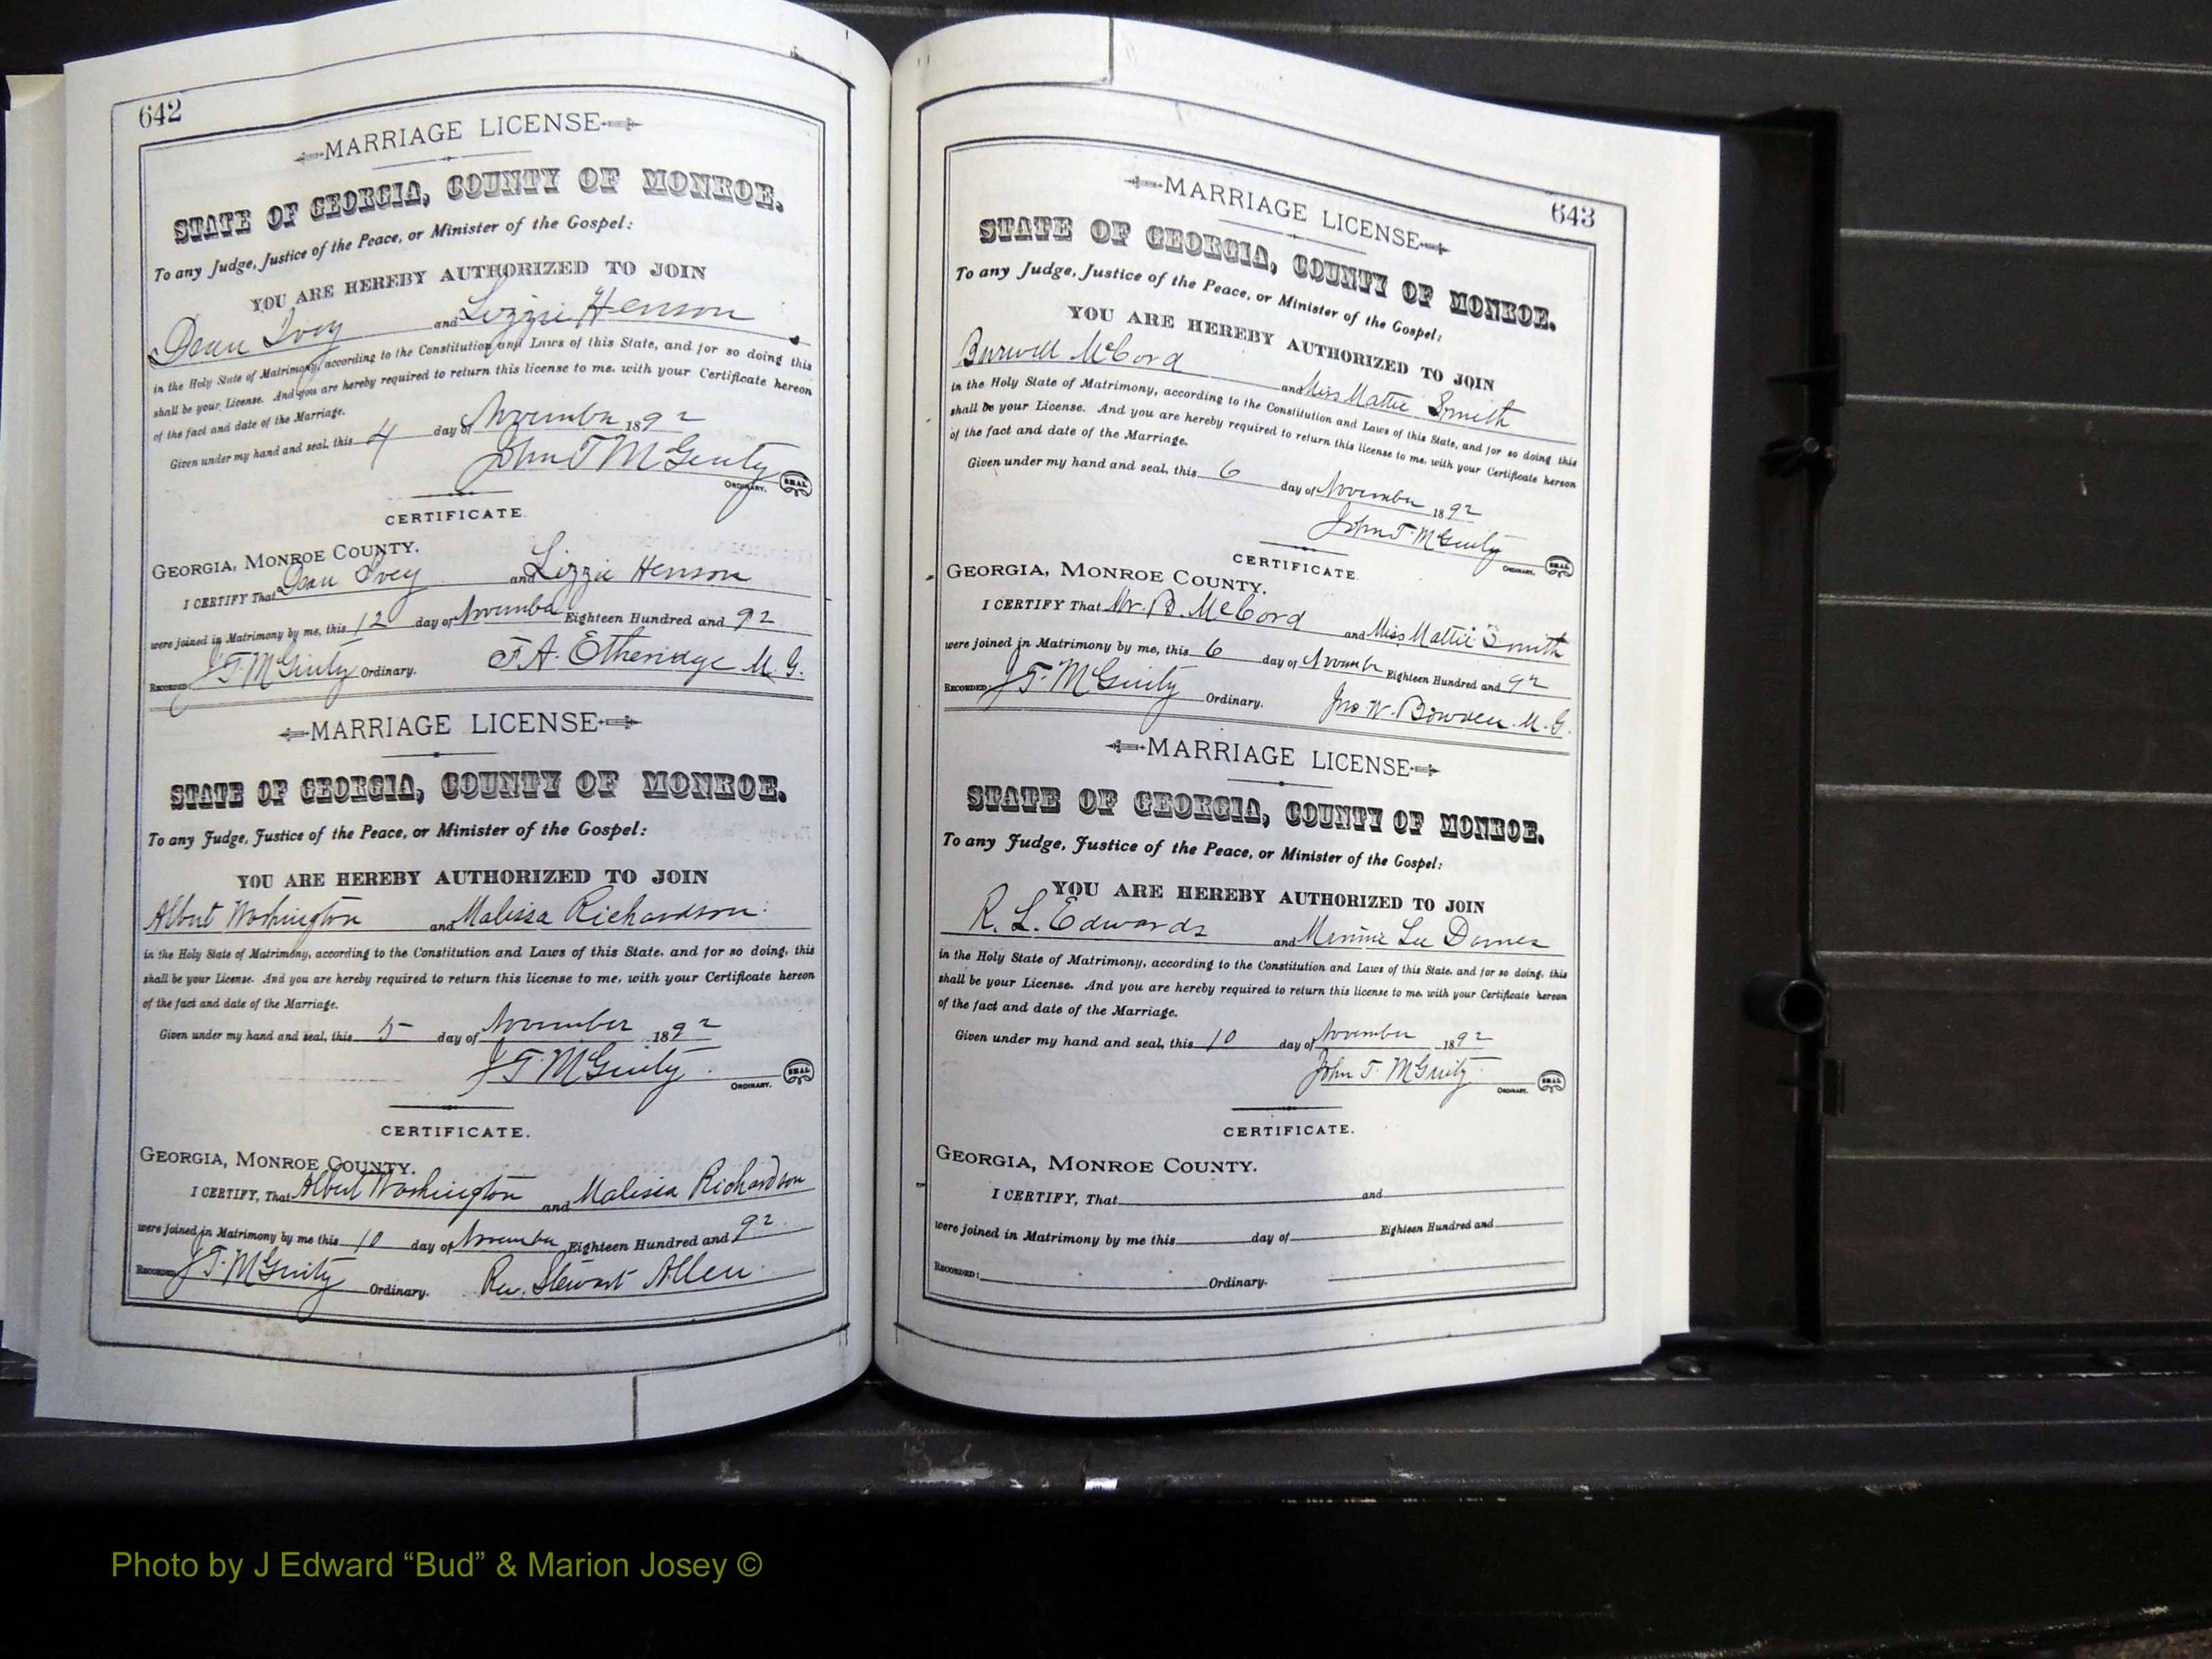 642
MARRIAGE LICENSE
STATE OF GEORGIA, COUNTY OF MONROE.
To any Judge, Justice of the Peace, or Minister of the Gospel:
YOU ARE HEREBY AUTHORIZED TO JOIN
Dean Ivey and Lizzie Henson
in the Holy State of Matrimony, according to the Constitution and Laws of this State, and for so doing this
shall be your License. And you are hereby required to return this license to me, with your Certificate hereon
of the fact and date of the Marriage.
Given under my hand and seal, this 4 day of November 1892
John T McGinty
ORDINARY. SEAL
CERTIFICATE.
GEORGIA, MONROE COUNTY.
I CERTIFY That Dean Ivey and Lizzie Henson
were joined in Matrimony by me, this 12 day of November Eighteen Hundred and 92
RECORDED: J T McGinty Ordinary. F. A. Etheridge M. G.
MARRIAGE LICENSE
STATE OF GEORGIA, COUNTY OF MONROE.
To any Judge, Justice of the Peace, or Minister of the Gospel:
YOU ARE HEREBY AUTHORIZED TO JOIN
Albert Washington and Malissa Richardson
in the Holy State of Matrimony, according to the Constitution and Laws of this State, and for so doing, this
shall be your License. And you are hereby required to return this license to me, with your Certificate hereon
of the fact and date of the Marriage.
Given under my hand and seal, this 5 day of November 1892
J T. McGinty
ORDINARY. SEAL
CERTIFICATE.
GEORGIA, MONROE COUNTY.
I CERTIFY, That Albert Washington and Malissia Richardson
were joined in Matrimony by me this 10 day of November Eighteen Hundred and 92
RECORDED: J T. McGinty Ordinary. Rev. Stewart Allen
643
MARRIAGE LICENSE
STATE OF GEORGIA, COUNTY OF MONROE.
To any Judge, Justice of the Peace, or Minister of the Gospel:
YOU ARE HEREBY AUTHORIZED TO JOIN
Burwell McCord and Miss Mattie Smith
in the Holy State of Matrimony, according to the Constitution and Laws of this State, and for so doing this
shall be your License. And you are hereby required to return this license to me, with your Certificate hereon
of the fact and date of the Marriage.
Given under my hand and seal, this 6 day of November 1892
John T. McGinty
ORDINARY. SEAL
CERTIFICATE.
GEORGIA, MONROE COUNTY.
I CERTIFY That Mr. B. McCord and Miss Mattie Smith
were joined in Matrimony by me, this 6 day of November Eighteen Hundred and 92
RECORDED: J T. McGinty Ordinary. Jno W. Bowden M. G.
MARRIAGE LICENSE
STATE OF GEORGIA, COUNTY OF MONROE.
To any Judge, Justice of the Peace, or Minister of the Gospel:
YOU ARE HEREBY AUTHORIZED TO JOIN
R. L. Edwards and Minnie Lee
in the Holy State of Matrimony, according to the Constitution and Laws of this State, and for so doing, this
shall be your License. And you are hereby required to return this license to me, with your Certificate hereon
of the fact and date of the Marriage.
Given under my hand and seal, this 10 day of November 1892
John T. McGinty
ORDINARY. SEAL
CERTIFICATE.
GEORGIA, MONROE COUNTY.
I CERTIFY, That and
were joined in Matrimony by me this day of Eighteen Hundred and
RECORDED: Ordinary.
Photo by J Edward “Bud” & Marion Josey ©